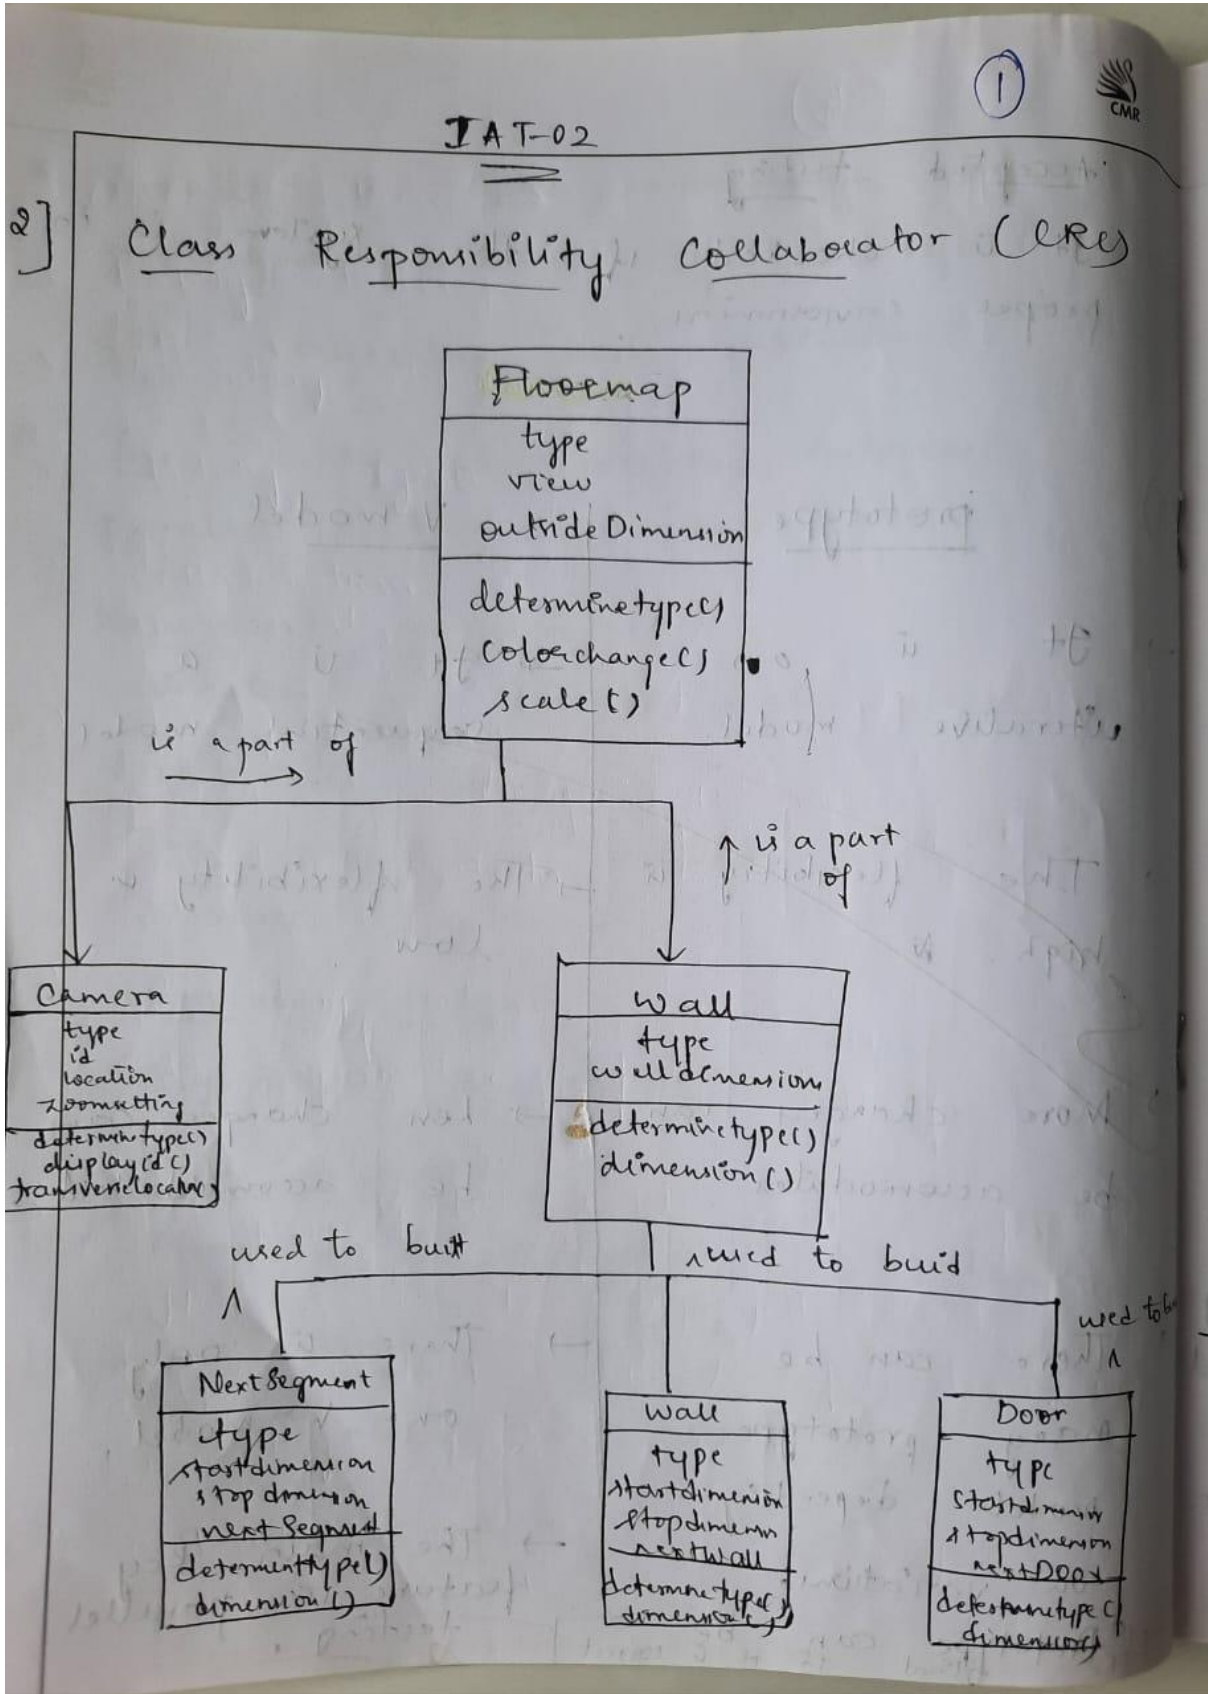 1
CMR
IAT-02
2]
Class Responsibility Collaborator (CRC)
Floormap
type
view
outside Dimension
determinetype()
colorchange()
scale()
is a part of
is a part
of
Camera
type
id
location
zoomsetting
determinetype()
displayid()
Wall
type
walldimension
determinetype()
dimension()
used to built
used to buid
used to b
Next Segment
type
startdimension
stop dimension
next Segment
determenttype()
dimension()
Wall
type
startdimension
stopdimenn
nextWall
determinetype()
dimension()
Door
type
startdimension
stopdimension
nextDoor
determinetype()
dimension()